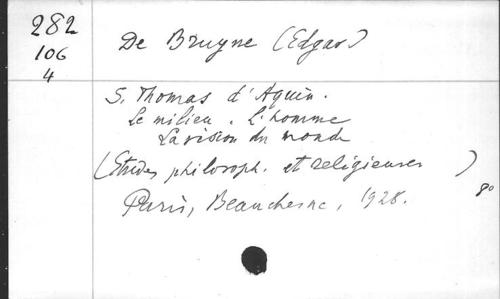 282
106
4
De Bruyne (Edgar)
S. Thomas d'Aquin.
Le milieu. L'homme
La vision du monde
(Etudes philosoph. et religieuses )
8°
Paris, Beauchesne, 1928.